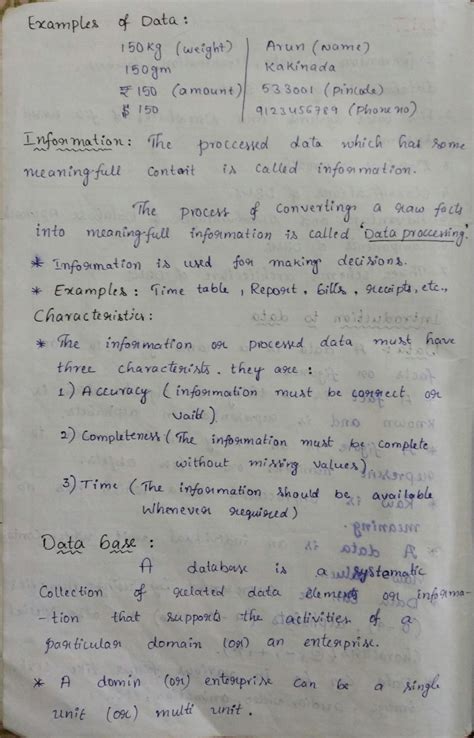 Examples of Data :
150kg (weight) | Arun (Name)
150gm | Kakinada
₹ 150 (amount) | 533001 (Pincode)
$ 150 | 9123456789 (Phone no)
Information : The proccessed data which has some
meaning-full contait is called information.
The process of convertings a raw facts
into meaning-full information is called 'Data proccessing'
* Information is used for making decisions.
* Examples : Time table , Report , bills , receipts, etc.,
Characteristics :
* The information or processed data must have
three characterists. they are :
1) Accuracy ( information must be correct or
vaild)
2) Completeness ( The information must be complete
without missing values)
3) Time ( The information should be available
whenever required)
Data base :
A database is a systematic
Collection of related data elements or informa-
-tion that supports the activities of a
particular domain (or) an enterprise.
* A domin (or) enterprise can be a single
unit (or) multi unit .